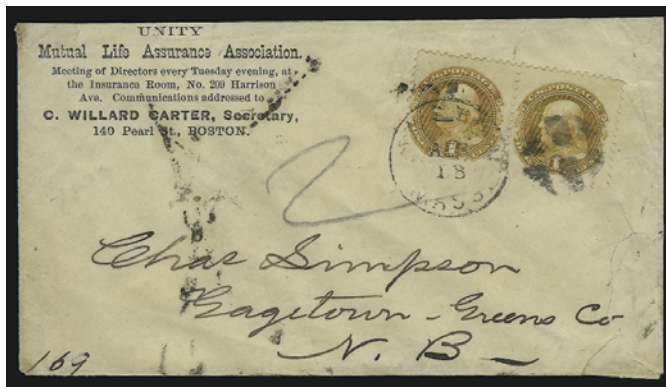 UNITY
Mutual Life Assurance Association.
Meeting of Directors every Tuesday evening, at
the Insurance Room, No. 209 Harrison
Ave. Communications addressed to
C. WILLARD CARTER, Secretary,
140 Pearl St., BOSTON.
U.S. POSTAGE
U.S. POSTAGE
1
1
18
MASS
2
Chas Simpson
Gagetown - Greens Co
N. B -
169